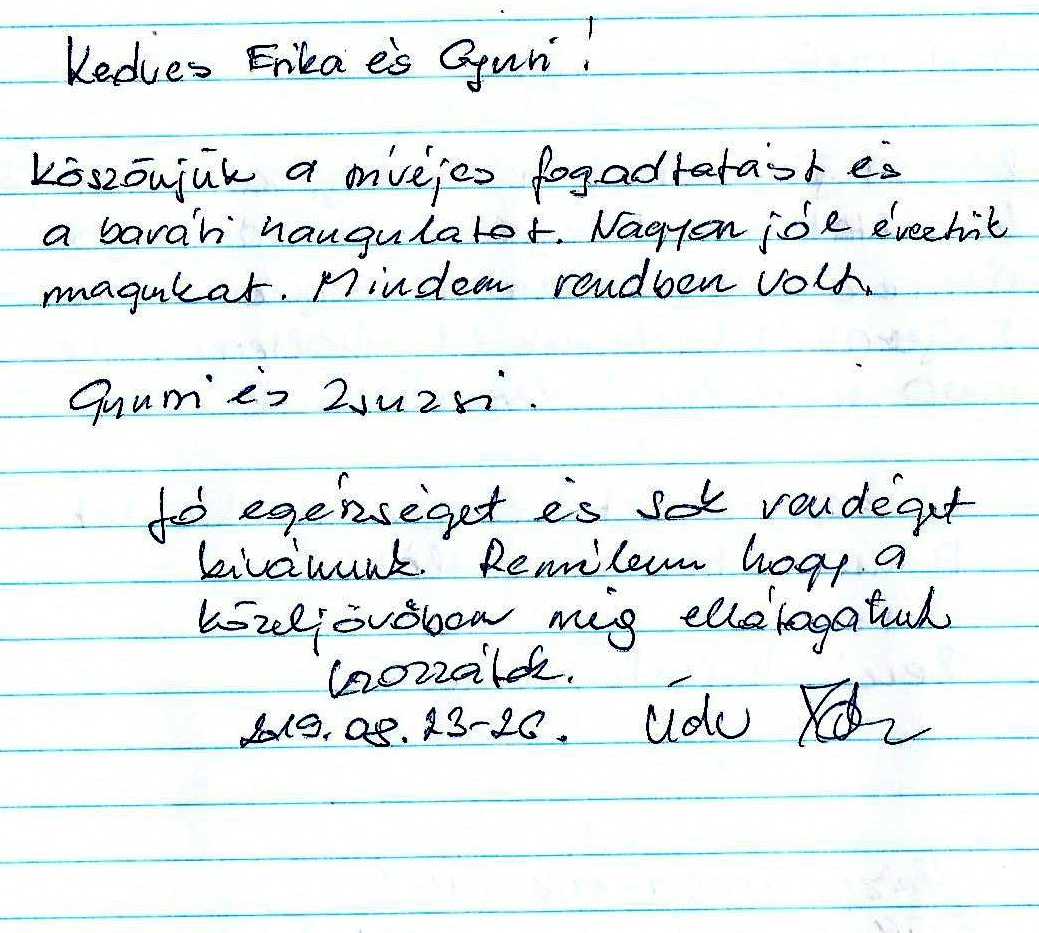 Kedves Erika és Gyuri!
Köszönjük a szívéjes fogadtatást és
a baráti hangulatot. Nagyon jól éreztük
magukat. Minden rendben volt.
Gyuri és Zsuzsi.
Jó egészséget és sok vendéget
kívánunk. Remélem hogy a
közeljövőben még ellátogatunk
hozzátok.
2019.08.23-26. Üdv